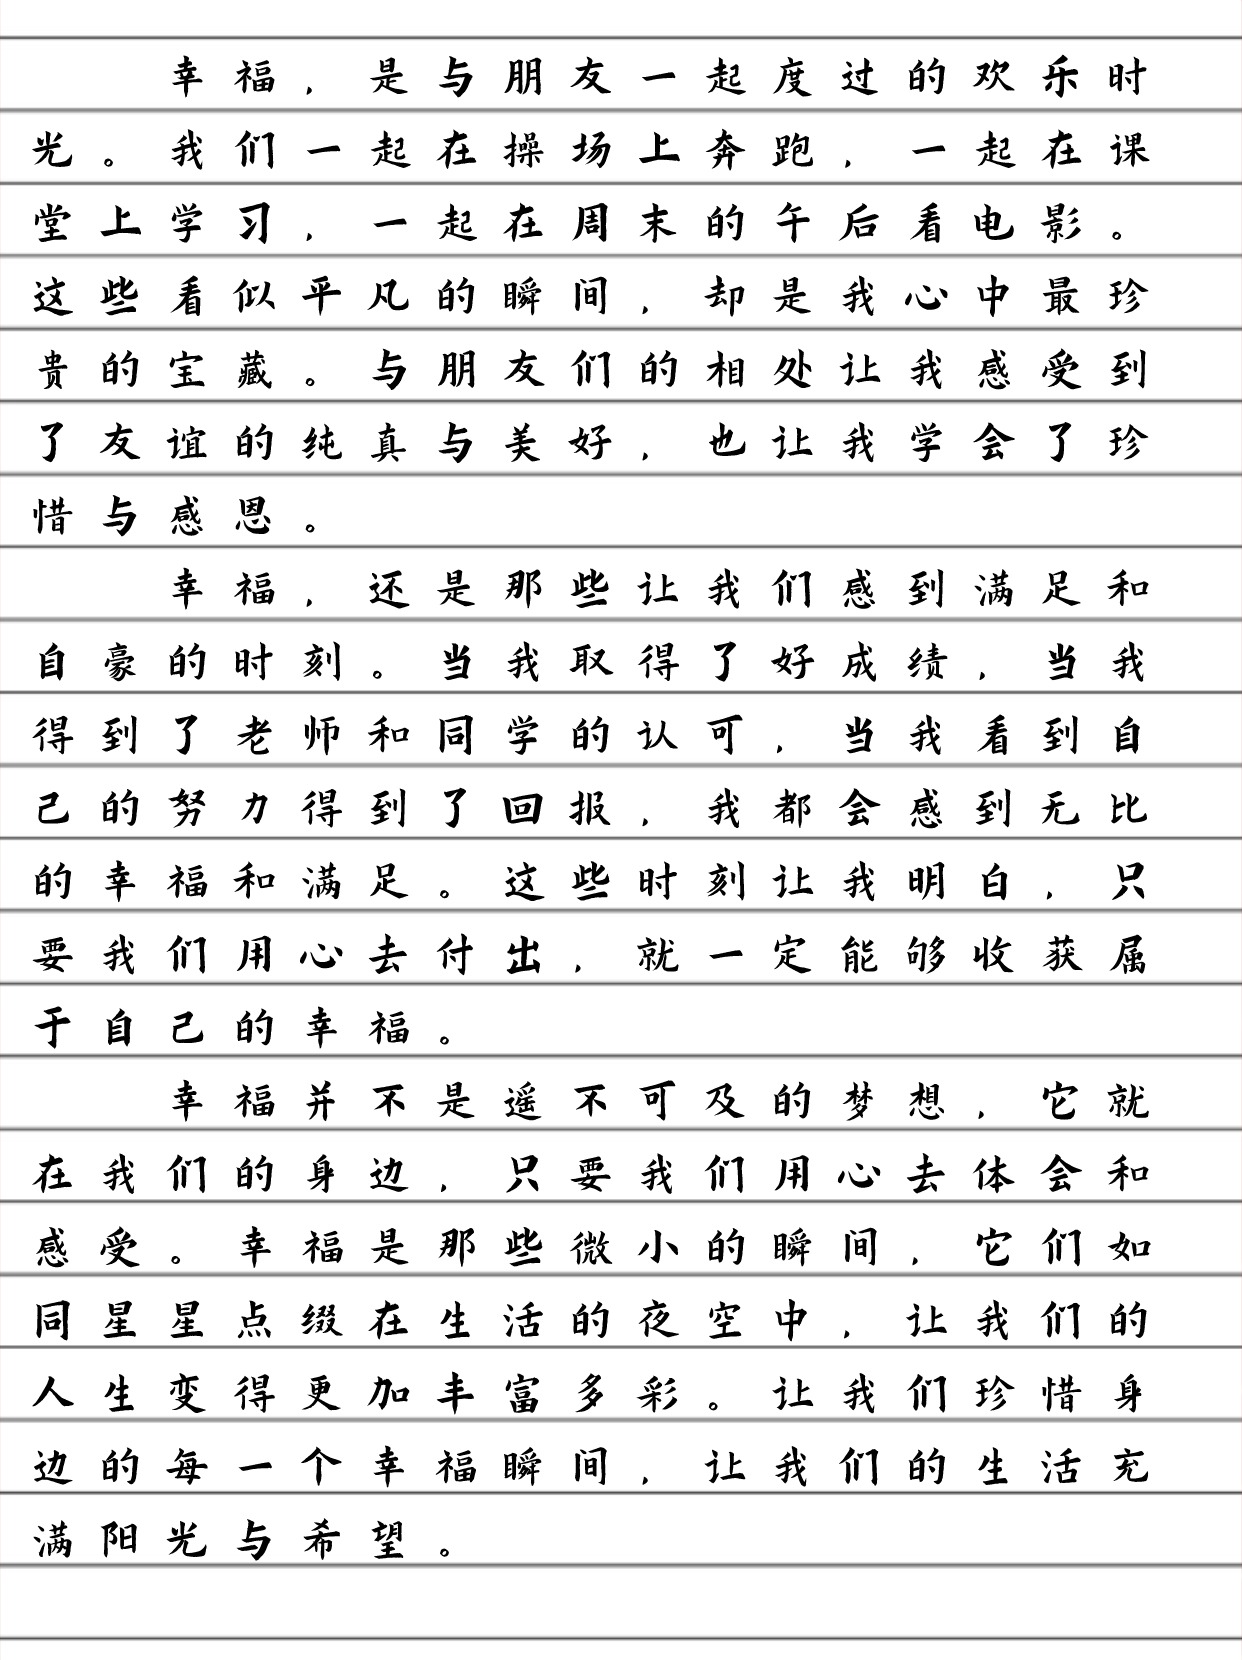 幸福，是与朋友一起度过的欢乐时
光。我们一起在操场上奔跑，一起在课
堂上学习，一起在周末的午后看电影。
这些看似平凡的瞬间，却是我心中最珍
贵的宝藏。与朋友们的相处让我感受到
了友谊的纯真与美好，也让我学会了珍
惜与感恩。
幸福，还是那些让我们感到满足和
自豪的时刻。当我取得了好成绩，当我
得到了老师和同学的认可，当我看到自
己的努力得到了回报，我都会感到无比
的幸福和满足。这些时刻让我明白，只
要我们用心去付出，就一定能够收获属
于自己的幸福。
幸福并不是遥不可及的梦想，它就
在我们的身边，只要我们用心去体会和
感受。幸福是那些微小的瞬间，它们如
同星星点缀在生活的夜空中，让我们的
人生变得更加丰富多彩。让我们珍惜身
边的每一个幸福瞬间，让我们的生活充
满阳光与希望。